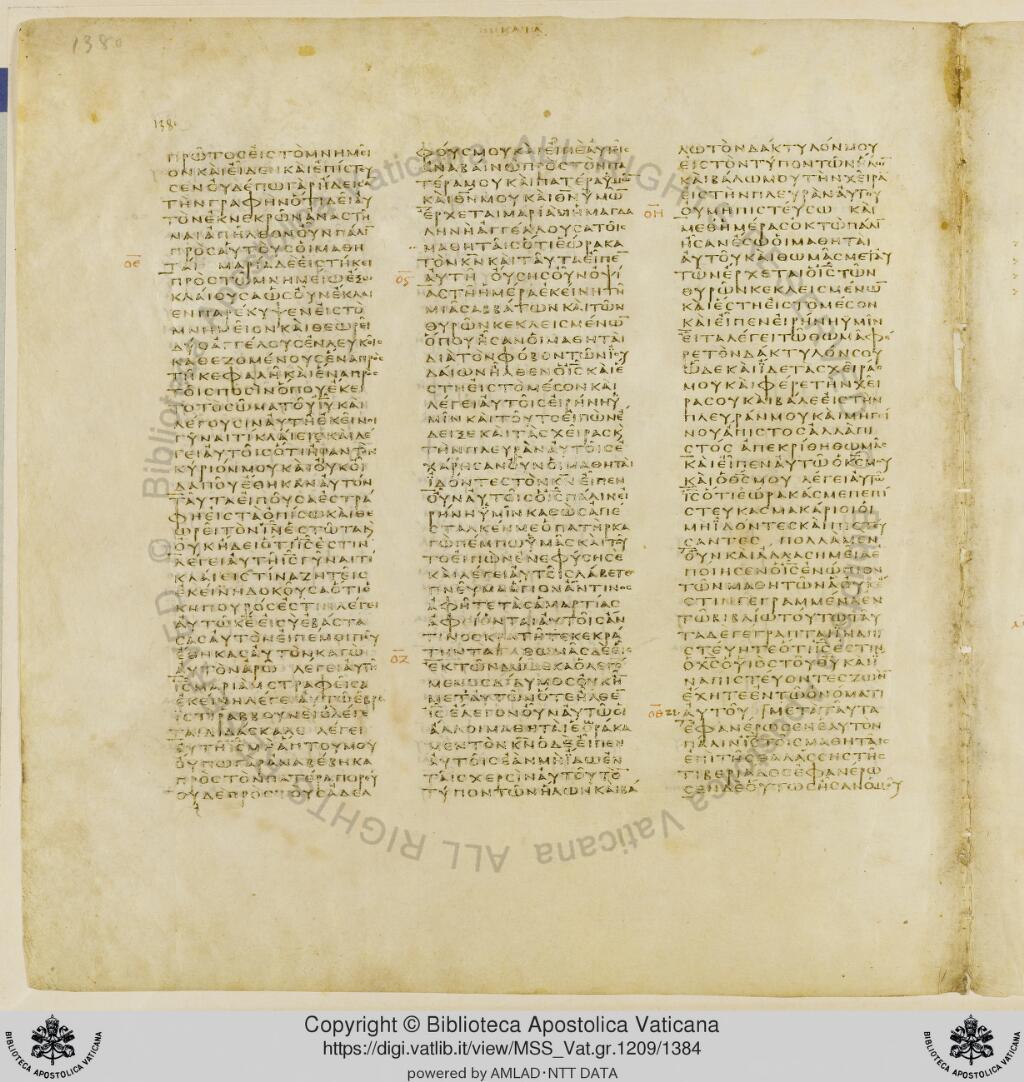 ΚΑΤΑ
1380
138
ΠΡΩΤΟϹΕΙϹΤΟΜΝΗΜΕΙ
ΟΝΚΑΙΕΙΔΕΝΚΑΙΕΠΙϹΤΕΥ
ϹΕΝΟΥΔΕΠΩΓΑΡΗΔΕΙϹΑ
ΤΗΝΓΡΑΦΗΝΟΤΙΔΕΙΑΥ
ΤΟΝΕΚΝΕΚΡΩΝΑΝΑϹΤΗ
ΝΑΙΑΠΗΛΘΟΝΟΥΝΠΑΛΙ̅
ΠΡΟϹΑΥΤΟΥϹΟΙΜΑΘΗ
ΟΕ ΤΑΙ ΜΑΡΙΑΔΕΕΙϹΤΗΚΕΙ
ΠΡΟϹΤΩΜΝΗΜΕΙΩΕΞΩ
ΚΛΑΙΟΥϹΑΩϹΟΥΝΕΚΛΑΙ
ΕΝΠΑΡΕΚΥΨΕΝΕΙϹΤΟ
ΜΝΗΜΕΙΟΝΚΑΙΘΕΩΡΕΙ
ΔΥΟΑΓΓΕΛΟΥϹΕΝΛΕΥΚΟΙϹ
ΚΑΘΕΖΟΜΕΝΟΥϹΕΝΑΠΡΟϹ
ΤΗΚΕΦΑΛΗΚΑΙΕΝΑΠΡΟϹ
ΤΟΙϹΠΟϹΙΝΟΠΟΥΕΚΕΙ
ΤΟΤΟϹΩΜΑΤΟΥΙ̅Υ̅ΚΑΙ
ΛΕΓΟΥϹΙΝΑΥΤΗΕΚΕΙΝΟΙ
ΓΥΝΑΙΤΙΚΛΑΙΕΙϹΚΑΙΛΕ
ΓΕΙΑΥΤΟΙϹΟΤΙΗΡΑΝΤΟΝ
ΚΥΡΙΟΝΜΟΥΚΑΙΟΥΚΟΙ
ΔΑΠΟΥΕΘΗΚΑΝΑΥΤΟΝ
ΤΑΥΤΑΕΙΠΟΥϹΑΕϹΤΡΑ
ΦΗΕΙϹΤΑΟΠΙϹΩΚΑΙΘΕ
ΩΡΕΙΤΟΝΙ̅Ν̅ΕϹΤΩΤΑΚ
ΟΥΚΗΔΕΙΟΤΙΙ̅Ϲ̅ΕϹΤΙΝ
ΛΕΓΕΙΑΥΤΗΙ̅Ϲ̅ΓΥΝΑΙΤΙ
ΚΛΑΙΕΙϹΤΙΝΑΖΗΤΕΙϹ
ΕΚΕΙΝΗΔΟΚΟΥϹΑΟΤΙΟ
ΚΗΠΟΥΡΟϹΕϹΤΙΝΛΕΓΕΙ
ΑΥΤΩΚ̅Ε̅ΕΙϹΥΕΒΑϹΤΑ
ϹΑϹΑΥΤΟΝΕΙΠΕΜΟΙΠΟΥ
ΕΘΗΚΑϹΑΥΤΟΝΚΑΓΩ
ΑΥΤΟΝΑΡΩ ΛΕΓΕΙΑΥΤΗ
Ι̅Ϲ̅ΜΑΡΙΑΜϹΤΡΑΦΕΙϹΑ
ΕΚΕΙΝΗΛΕΓΕΙΑΥΤΩΕΒΡΑ
ΙϹΤΙΡΑΒΒΟΥΝΕΙΟΛΕΓΕ
ΤΑΙΔΙΔΑϹΚΑΛΕ ΛΕΓΕΙ
ΑΥΤΗΙ̅Ϲ̅ΜΗΑΠΤΟΥΜΟΥ
ΟΥΠΩΓΑΡΑΝΑΒΕΒΗΚΑ
ΠΡΟϹΤΟΝΠΑΤΕΡΑΠΟΡΕΥ
ΟΥΔΕΠΡΟϹΤΟΥϹΑΔΕΛ
ΦΟΥϹΜΟΥΚΑΙΕΙΠΕΑΥΤΟΙϹ
ΑΝΑΒΑΙΝΩΠΡΟϹΤΟΝΠΑ
ΤΕΡΑΜΟΥΚΑΙΠΑΤΕΡΑΥΜΩ̅
ΚΑΙΘ̅Ν̅ΜΟΥΚΑΙΘ̅Ν̅ΥΜΩ̅
ΕΡΧΕΤΑΙΜΑΡΙΑΜΗΜΑΓΔΑ
ΛΗΝΗΑΓΓΕΛΛΟΥϹΑΤΟΙϹ
ΜΑΘΗΤΑΙϹΟΤΙΕΩΡΑΚΑ
ΤΟΝΚ̅Ν̅ΚΑΙΤΑΥΤΑΕΙΠΕ̅
ΟϚ ΑΥΤΗ ΟΥϹΗϹΟΥΝΟΨΙ
ΑϹΤΗΗΜΕΡΑΕΚΕΙΝΗΤΗ
ΜΙΑϹΑΒΒΑΤΩΝΚΑΙΤΩΝ
ΘΥΡΩΝΚΕΚΛΕΙϹΜΕΝΩ̅
ΟΠΟΥΗϹΑΝΟΙΜΑΘΗΤΑΙ
ΔΙΑΤΟΝΦΟΒΟΝΤΩΝΙΟΥ
ΔΑΙΩΝΗΛΘΕΝΟΙ̅Ϲ̅ΚΑΙΕ
ϹΤΗΕΙϹΤΟΜΕϹΟΝΚΑΙ
ΛΕΓΕΙΑΥΤΟΙϹΕΙΡΗΝΗΥ
ΜΙΝΚΑΙΤΟΥΤΟΕΙΠΩΝΕ
ΔΕΙΞΕΚΑΙΤΑϹΧΕΙΡΑϹΚ
ΤΗΝΠΛΕΥΡΑΝΑΥΤΟΙϹΕ
ΧΑΡΗϹΑΝΟΥΝΟΙΜΑΘΗΤΑΙ
ΙΔΟΝΤΕϹΤΟΝΚ̅Ν̅ΕΙΠΕΝ
ΟΥΝΑΥΤΟΙϹΟΙ̅Ϲ̅ΠΑΛΙΝΕΙ
ΡΗΝΗΥΜΙΝΚΑΘΩϹΑΠΕ
ϹΤΑΛΚΕΝΜΕΟΠΑΤΗΡΚΑ
ΓΩΠΕΜΠΩΥΜΑϹΚΑΙΤΟΥ
ΤΟΕΙΠΩΝΕΝΕΦΥϹΗϹΕ
ΚΑΙΛΕΓΕΙΑΥΤΟΙϹΛΑΒΕΤΕ
ΠΝΕΥΜΑΑΓΙΟΝΑΝΤΙΝΟϹ
ΑΦΗΤΕΤΑϹΑΜΑΡΤΙΑϹ
ΑΦΕΙΟΝΤΑΙΑΥΤΟΙϹΑΝ
ΤΙΝΟϹΚΡΑΤΗΤΕΚΕΚΡΑ
ΟΖ ΤΗΝΤΑΙΘΩΜΑϹΔΕΕΙϹ
ΕΚΤΩΝΔΩΔΕΚΑΟΛΕΓΟ
ΜΕΝΟϹΔΙΔΥΜΟϹΟΥΚΗΝ
ΜΕΤΑΥΤΩΝΟΤΕΗΛΘΕ
Ι̅Ϲ̅ΕΛΕΓΟΝΟΥΝΑΥΤΩΟΙ
ΑΛΛΟΙΜΑΘΗΤΑΙΕΩΡΑΚΑ
ΜΕΝΤΟΝΚ̅Ν̅ΟΔΕΕΙΠΕΝ
ΑΥΤΟΙϹΕΑΝΜΗΙΔΩΕΝ
ΤΑΙϹΧΕΡϹΙΝΑΥΤΟΥΤΟ̅
ΤΥΠΟΝΤΩΝΗΛΩΝΚΑΙΒΑ
ΛΩΤΟΝΔΑΚΤΥΛΟΝΜΟΥ
ΕΙϹΤΟΝΤΥΠΟΝΤΩΝΗΛΩ̅
ΚΑΙΒΑΛΩΜΟΥΤΗΝΧΕΙΡΑ
ΕΙϹΤΗΝΠΛΕΥΡΑΝΑΥΤΟΥ
ΟΗ ΟΥΜΗΠΙϹΤΕΥϹΩ ΚΑΙ
ΜΕΘΗΜΕΡΑϹΟΚΤΩΠΑΛΙ̅
ΗϹΑΝΕϹΩΟΙΜΑΘΗΤΑΙ
ΑΥΤΟΥΚΑΙΘΩΜΑϹΜΕΤΑΥ
ΤΩΝΕΡΧΕΤΑΙΟΙ̅Ϲ̅ΤΩΝ
ΘΥΡΩΝΚΕΚΛΕΙϹΜΕΝΩ̅
ΚΑΙΕϹΤΗΕΙϹΤΟΜΕϹΟΝ
ΚΑΙΕΙΠΕΝΕΙΡΗΝΗΥΜΙΝ
ΕΙΤΑΛΕΓΕΙΤΩΘΩΜΑΦΕ
ΡΕΤΟΝΔΑΚΤΥΛΟΝϹΟΥ
ΩΔΕΚΑΙΙΔΕΤΑϹΧΕΙΡΑϹ
ΜΟΥΚΑΙΦΕΡΕΤΗΝΧΕΙ
ΡΑϹΟΥΚΑΙΒΑΛΕΕΙϹΤΗΝ
ΠΛΕΥΡΑΝΜΟΥΚΑΙΜΗΓΙ
ΝΟΥΑΠΙϹΤΟϹΑΛΛΑΠΙ
ϹΤΟϹ ΑΠΕΚΡΙΘΗΘΩΜΑϹ
ΚΑΙΕΙΠΕΝΑΥΤΩΟΚ̅Ϲ̅ΜΟΥ
ΚΑΙΟΘ̅Ϲ̅ΜΟΥ ΛΕΓΕΙΑΥΤΩ
Ι̅Ϲ̅ΟΤΙΕΩΡΑΚΑϹΜΕΠΕΠΙ
ϹΤΕΥΚΑϹΜΑΚΑΡΙΟΙΟΙ
ΜΗΙΔΟΝΤΕϹΚΑΙΠΙϹΤΕΥ
ϹΑΝΤΕϹ ΠΟΛΛΑΜΕΝ
ΟΥΝΚΑΙΑΛΛΑϹΗΜΕΙΑΕ
ΠΟΙΗϹΕΝΟΙ̅Ϲ̅ΕΝΩΠΙΟΝ
ΤΩΝΜΑΘΗΤΩΝΑΟΥΚΕ
ϹΤΙΝΓΕΓΡΑΜΜΕΝΑΕΝ
ΤΩΒΙΒΛΙΩΤΟΥΤΩΤΑΥ
ΤΑΔΕΓΕΓΡΑΠΤΑΙΙΝΑΠΙ
ϹΤΕΥΗΤΕΟΤΙΙ̅Ϲ̅ΕϹΤΙΝ
ΟΧ̅Ϲ̅ΟΥΙΟϹΤΟΥΘ̅Υ̅ΚΑΙΙ
ΝΑΠΙϹΤΕΥΟΝΤΕϹΖΩΗΝ
ΕΧΗΤΕΕΝΤΩΟΝΟΜΑΤΙ
ΟΘ ΑΥΤΟΥ ΜΕΤΑΤΑΥΤΑ
ΕΦΑΝΕΡΩϹΕΝΕΑΥΤΟΝ
ΠΑΛΙΝΙ̅Ϲ̅ΤΟΙϹΜΑΘΗΤΑΙϹ
ΕΠΙΤΗϹΘΑΛΑϹϹΗϹΤΗϹ
ΤΙΒΕΡΙΑΔΟϹΕΦΑΝΕΡΩ
ϹΕΝΔΕΟΥΤΩϹΗϹΑΝΟΜΟΥ
Copyright © Biblioteca Apostolica Vaticana
https://digi.vatlib.it/view/MSS_Vat.gr.1209/1384
powered by AMLAD·NTT DATA
BIBLIOTECA APOSTOLICA VATICANA
BIBLIOTECA APOSTOLICA VATICANA